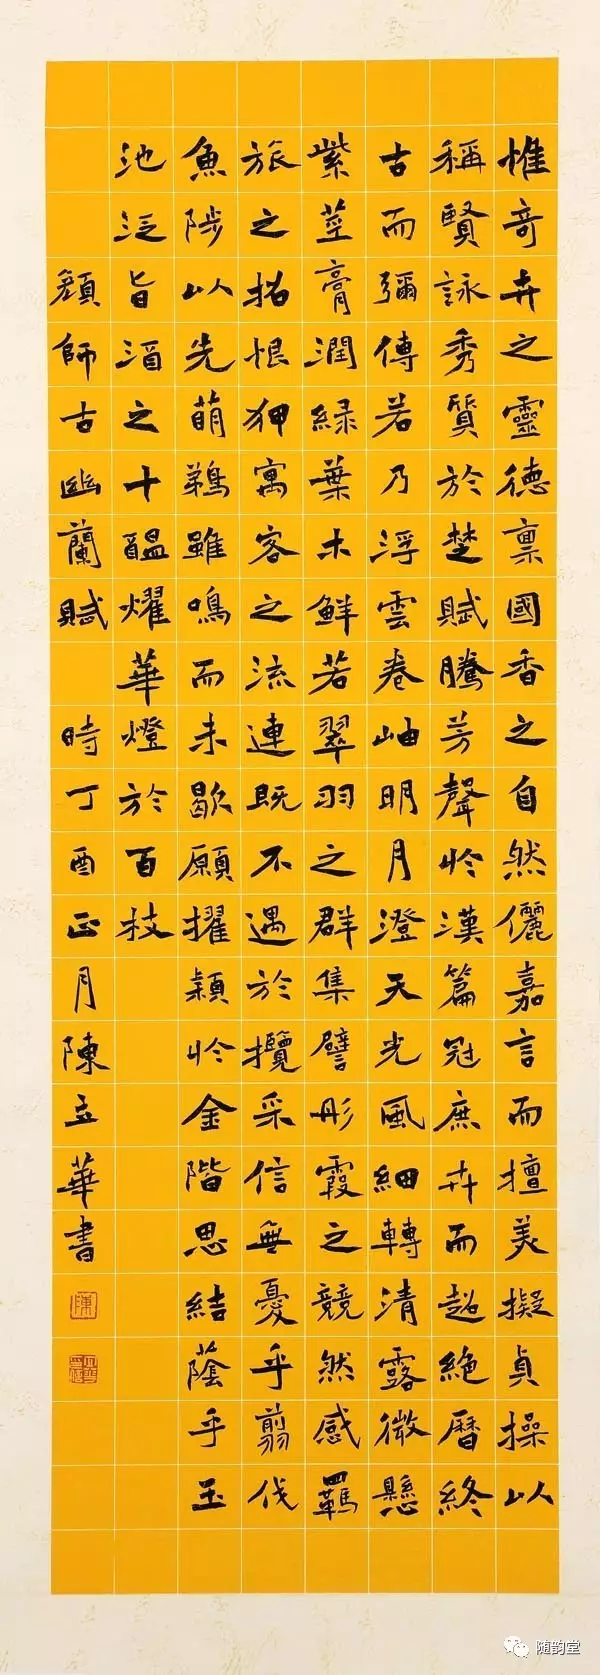 惟奇卉之靈德禀國香之自然儷嘉言而擅美擬貞操以
稱賢詠秀質於楚賦騰芳聲於漢篇冠庶卉而超絕曆終
古而彌傳若乃浮雲卷岫明月澄天光風細轉清露微懸
紫莖膏潤緑葉水鮮若翠羽之群集譬彤霞之競然感羈
旅之招恨狎寓客之流連既不遇於攬采信無憂乎翦伐
魚陟以先萌鶗雖鳴而未歇願擢穎於金階思結蔭乎玉
池泛旨酒之十醞燿華燈於百枝
顏師古幽蘭賦 時丁酉正月陳立華書
陳
随韵堂